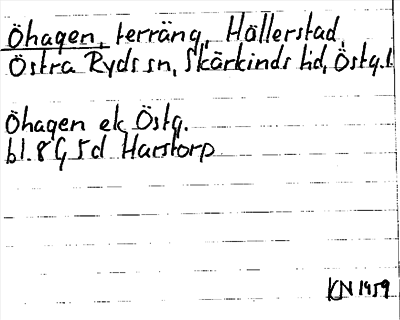 Öhagen, terräng, Hällerstad
Östra Ryds sn, Skärkinds hd, Östg.l
Öhagen ek Östg.
bl. 8 G 5 d Harstorp
KN 1959